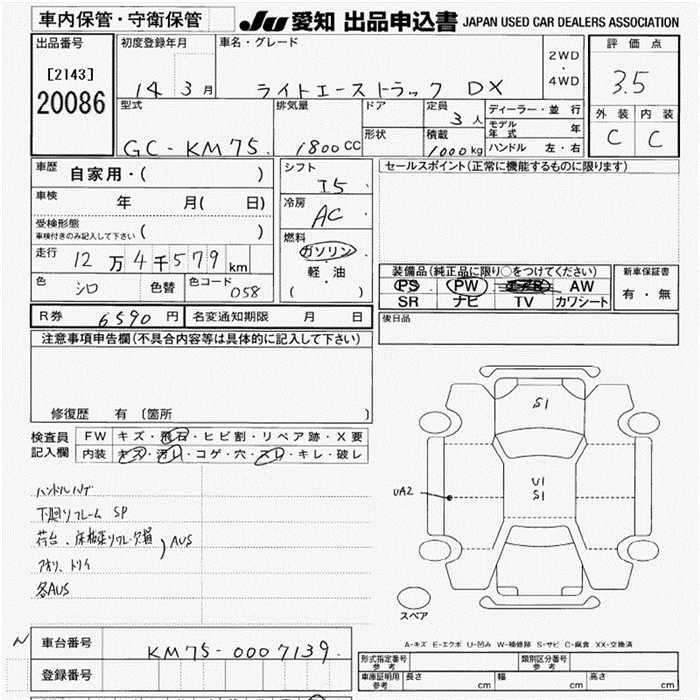 車内保管・守衛保管
JU 愛知 出品申込書 JAPAN USED CAR DEALERS ASSOCIATION
出品番号
[2143]
20086
初度登録年月
14 3 月
車名・グレード
ライトエーストラック DX
2WD
・
4WD
評価点
3.5
外装 内装
C C
型式
GC-KM75.
排気量
1800 CC
ドア
形状
定員
3 人
積載
1000 kg
ディーラー・並行
モデル年式 年
ハンドル 左・右
車歴
自家用・( )
車検
年 月( 日)
受検形態
車検付きのみ記入して下さい ( )
走行
12 万 4 千 579 km
色
シロ 色替
色コード
058
シフト
I5
冷房
AC
燃料
ガソリン
軽・油
( )
セールスポイント(正常に機能するものに限ります)
装備品(純正品に限り○をつけてください)
PS PW AW
SR ナビ TV カワシート
新車保証書
有・無
R券 6590 円 名変通知期限 月 日
後日品
注意事項申告欄(不具合内容等は具体的に記入して下さい)
修復歴 有 〔箇所 〕
検査員
記入欄
FW キズ・飛石・ヒビ割・リペア跡・X要
内装 キズ・汚レ・コゲ・穴・スレ・キレ・破レ
ハンドルハゲ
下廻りフレーム SP
荷台、
AUS
アオリ、トリイ
各AUS
S1
U1
S1
UA2
スペア
A-キズ E-エクボ U-凹み W-補修跡 S-サビ C-腐食 XX-交換済
N
車台番号 KM75-0007139.
登録番号
形式指定番号
参考
類別区分番号
参考
車庫証明用
参考
長さ cm 幅 cm 高さ cm